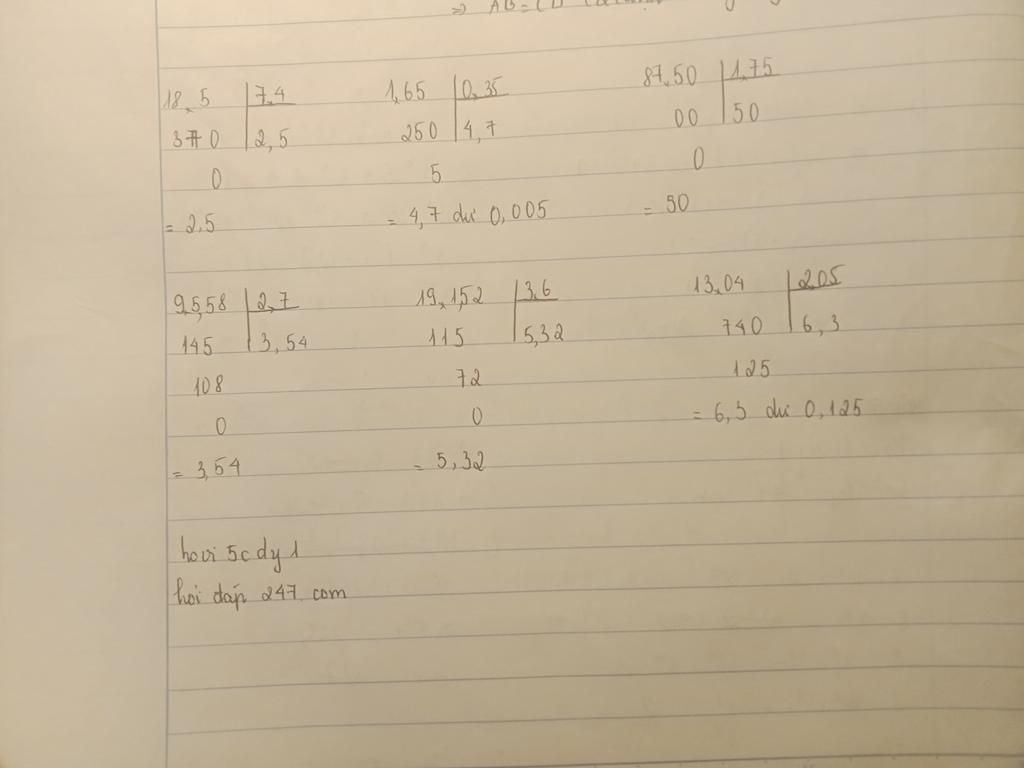 ⇒ AB = CD
18,5 7,4 1,65 0,35 87,50 1,75
370 2,5 250 4,7 00 50
0 5 0
= 2,5 = 4,7 dư 0,005 = 50
9,5,58 2,7 19,1,52 3,6 13,04 2,05
145 3,54 115 5,32 740 6,3
108 72 125
0 0 = 6,3 dư 0,125
= 3,54 = 5,32
hovi 5c dy 1
hỏi đáp 247 com